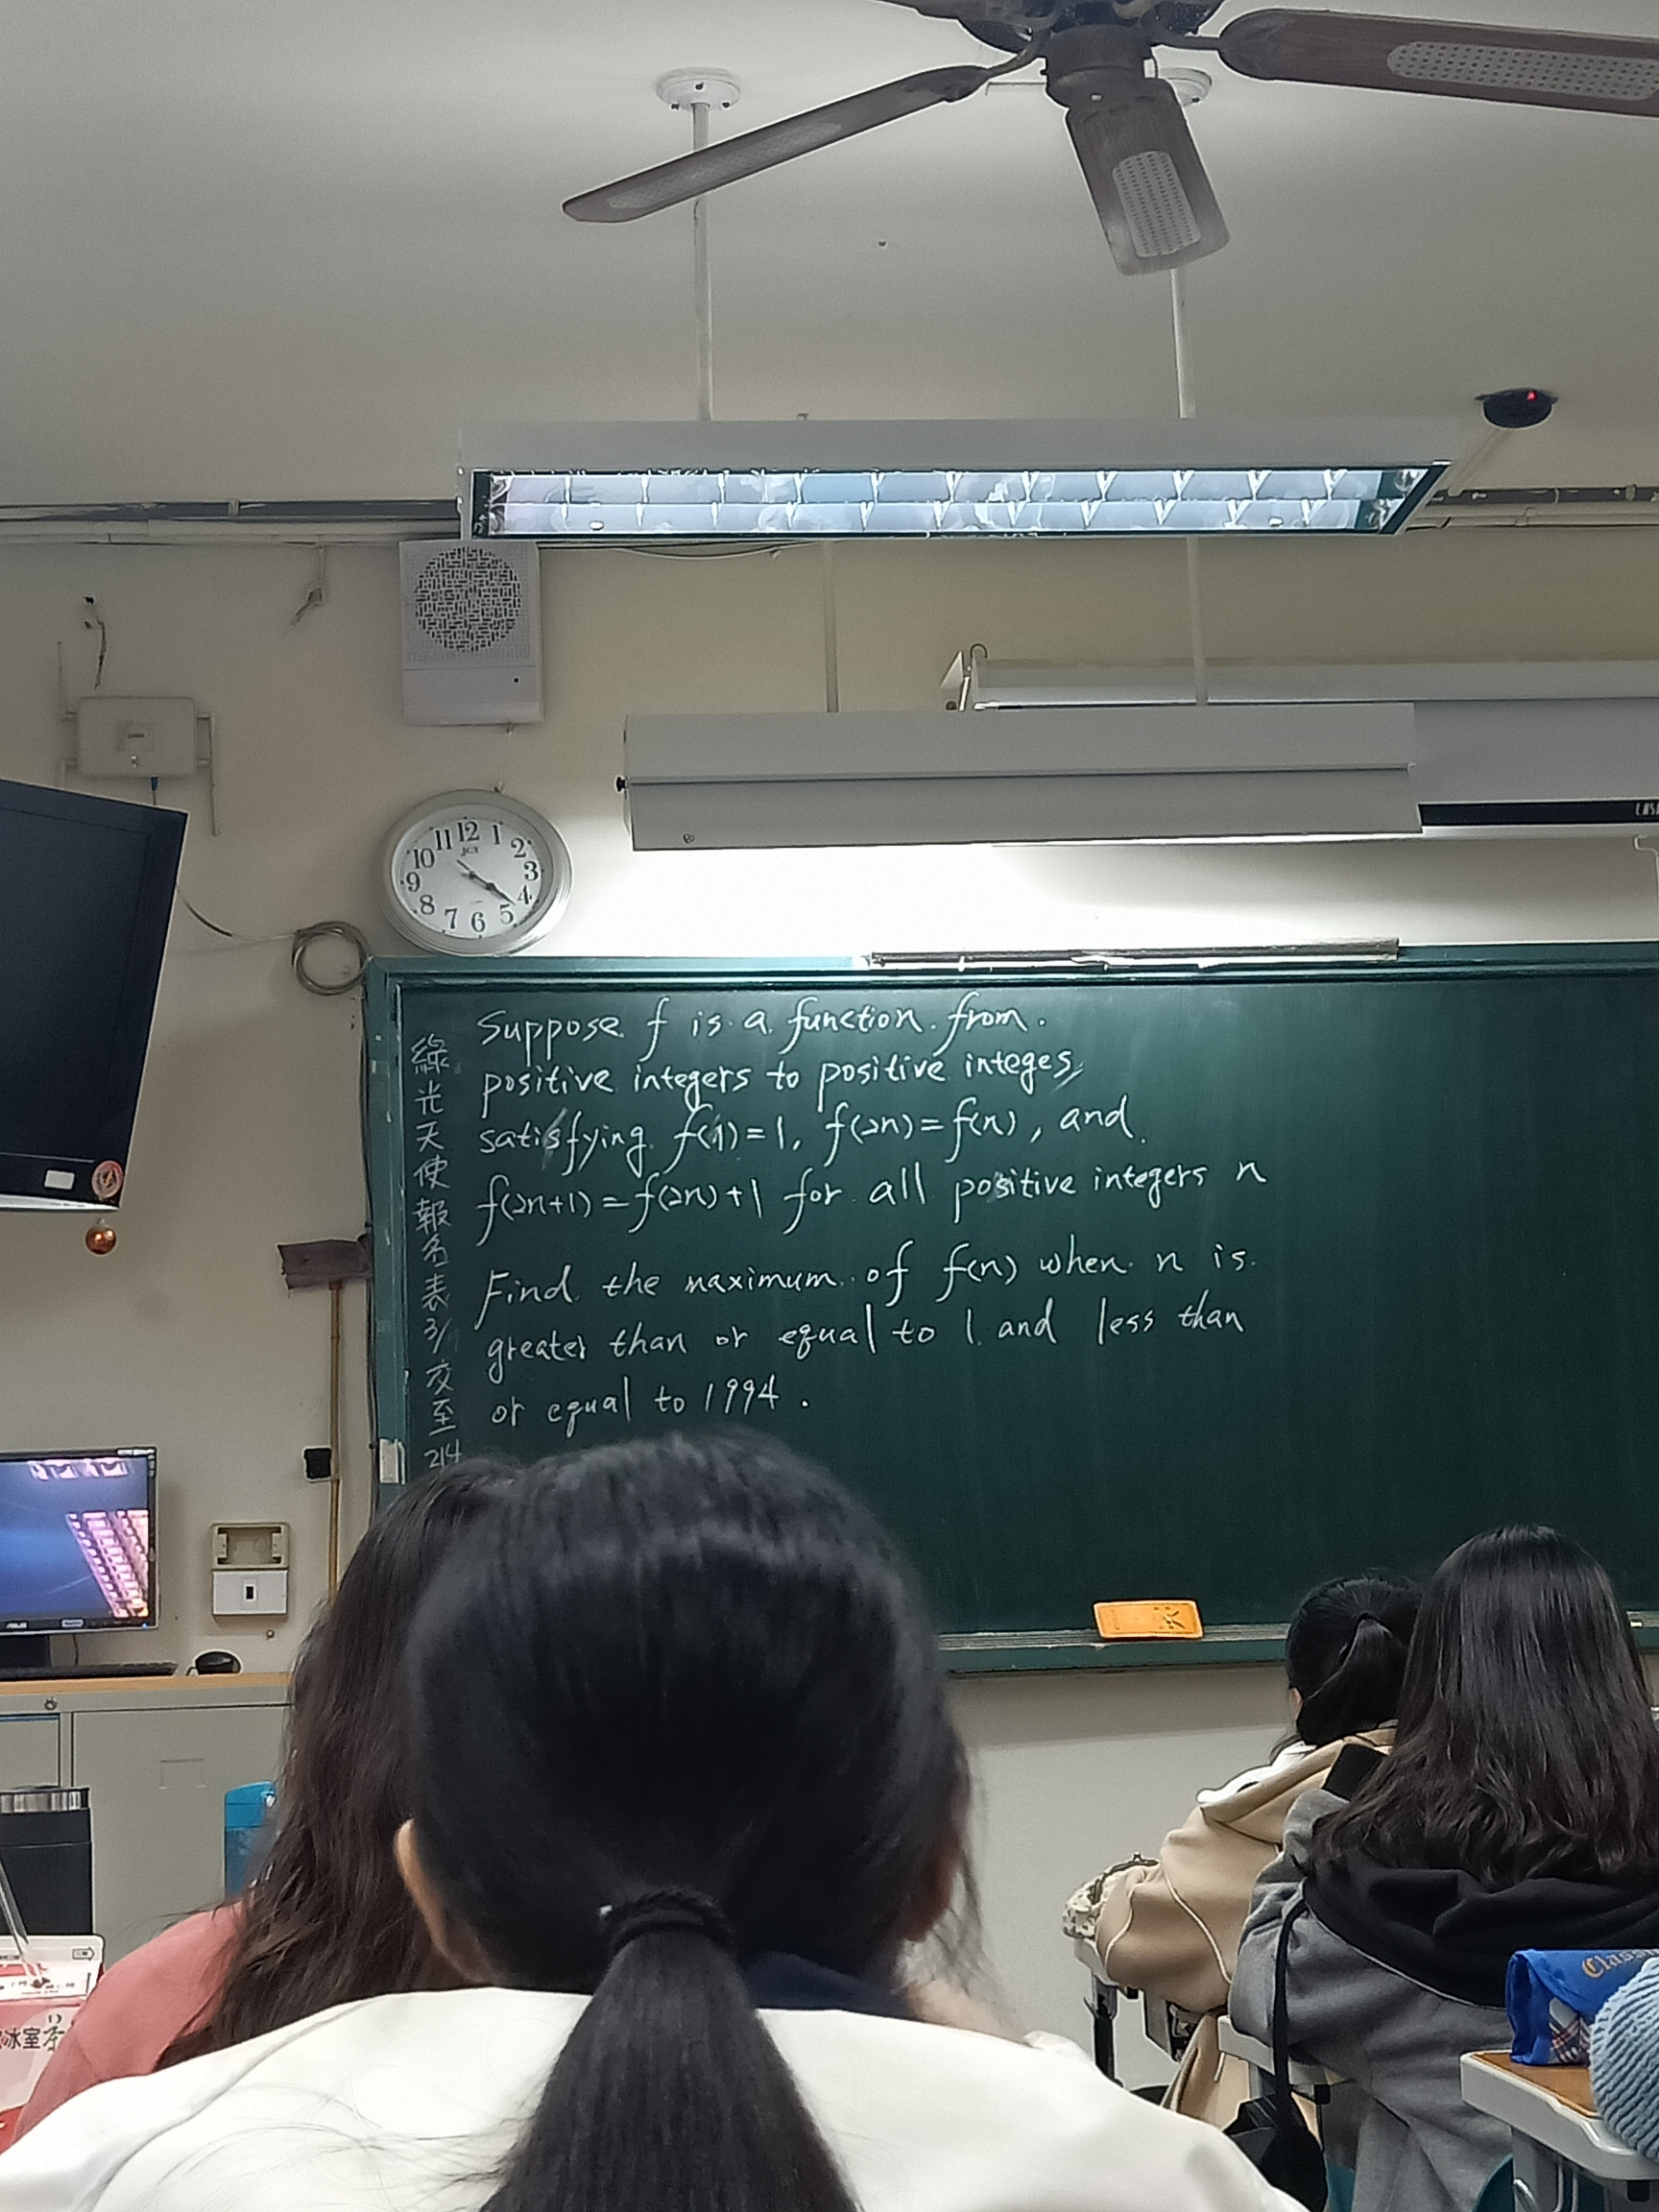 12
1
2
3
4
5
6
7
8
9
10
11
JCY
綠光天使報名表3/交至214
Suppose f is a function from.
positive integers to positive integes,
satisfying f(1)=1, f(2n)=f(n), and
f(2n+1)=f(2n)+1 for all positive integers n
Find the maximum of f(n) when n is
greater than or equal to 1 and less than
or equal to 1994.
ASUS
冰室